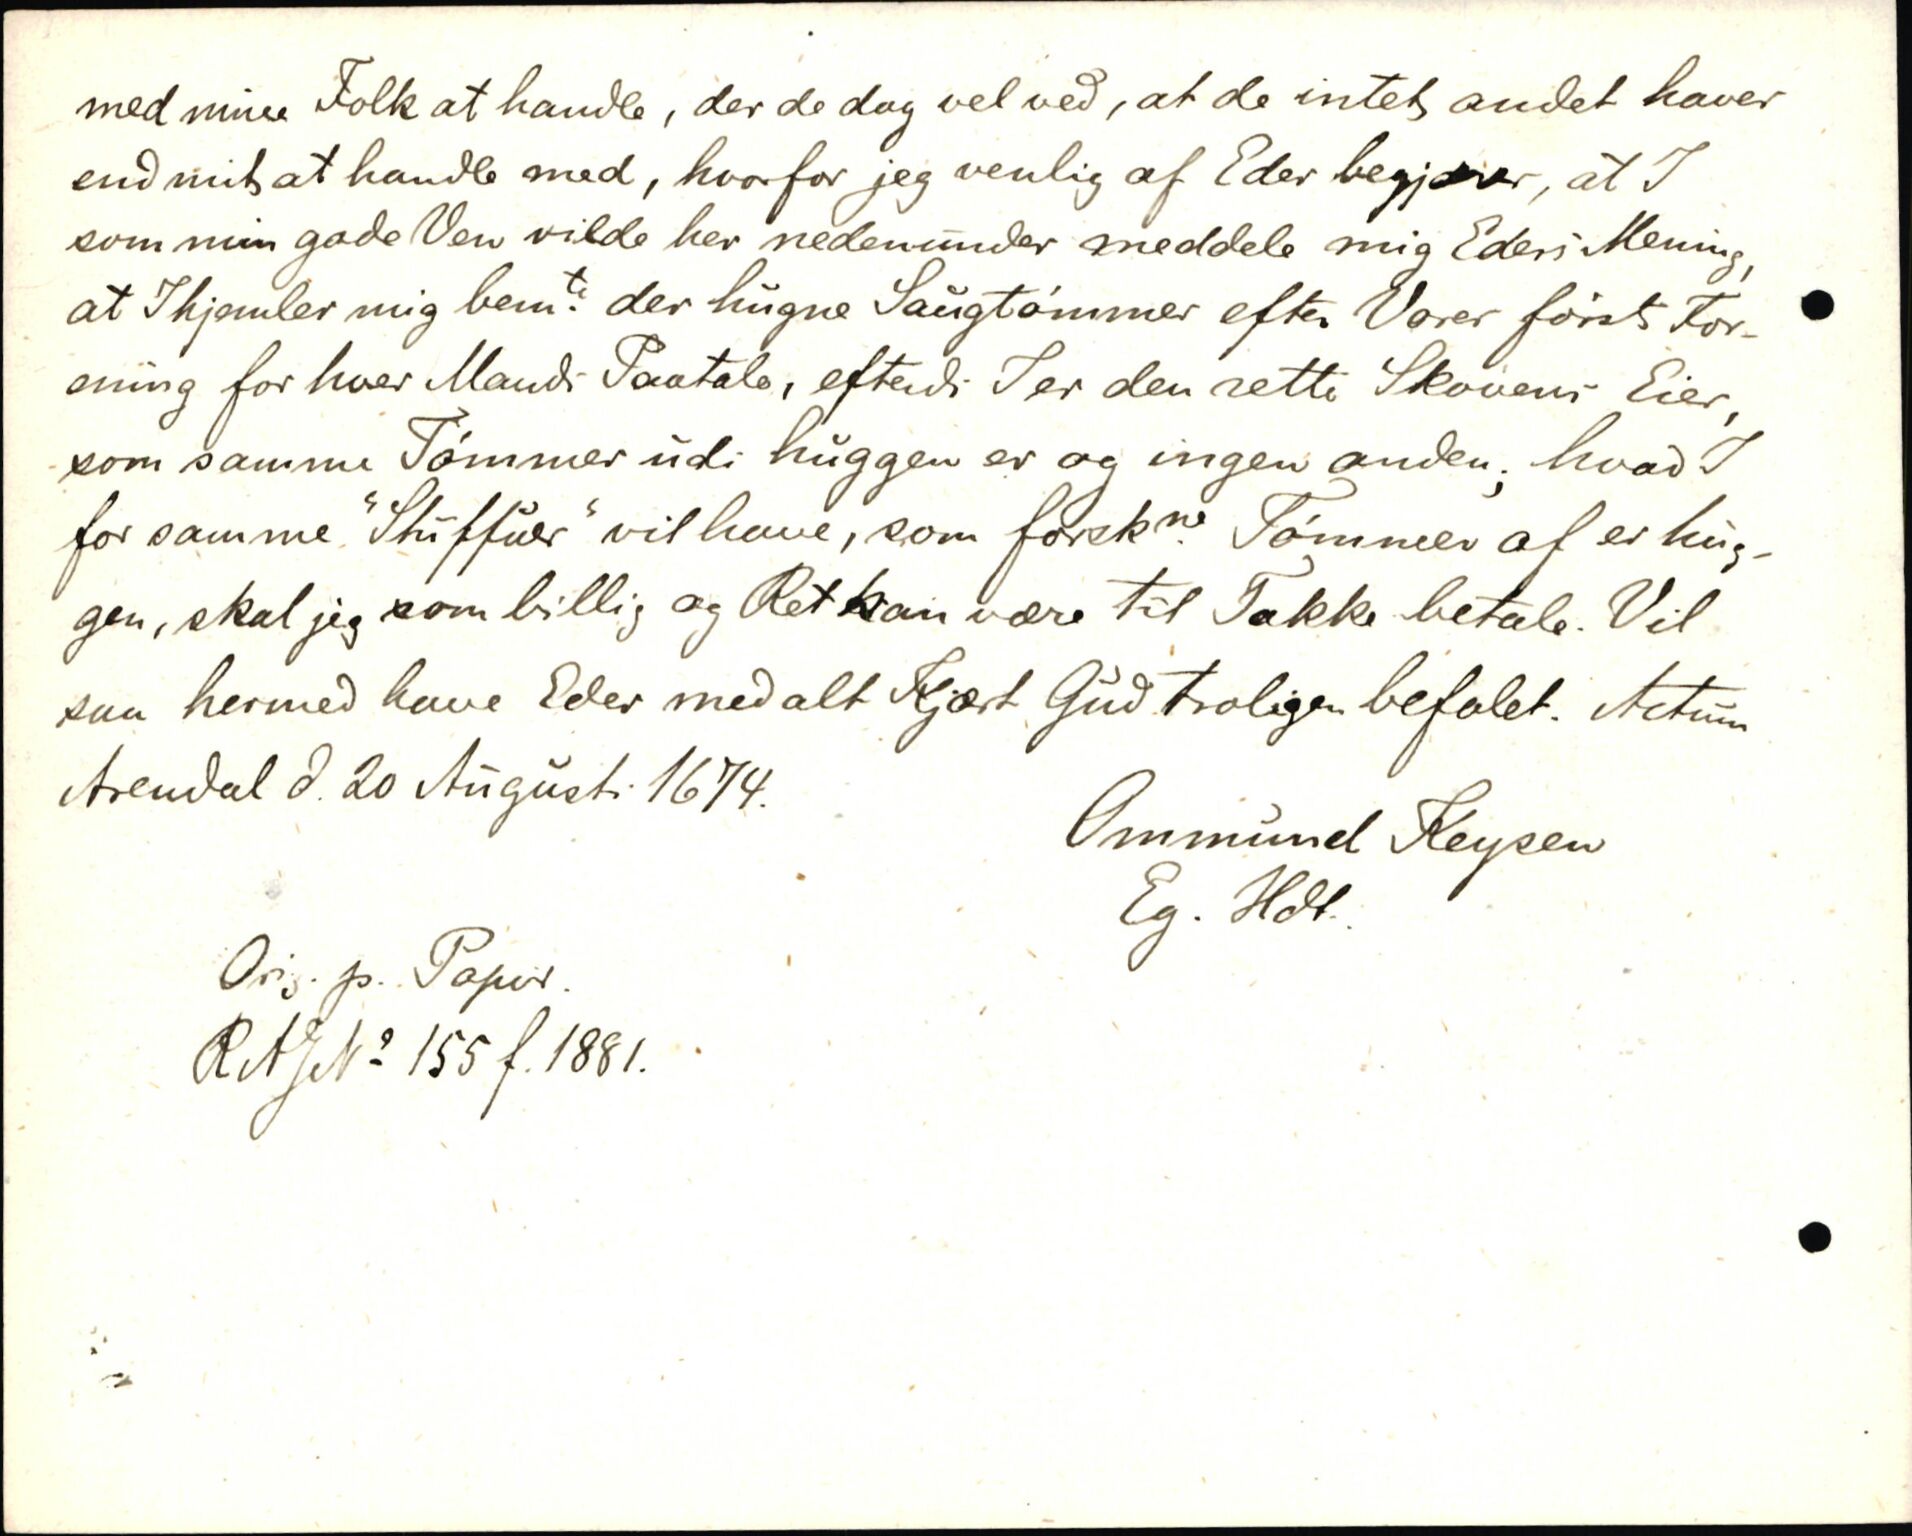 med mine Folk at handle, der de dog vel ved, at de intet andet haver
end mit at handle med, hvorfor jeg venlig af Eder begjærer, at I
som min gode Ven vilde her nedenunder meddele mig Eders Mening,
at I hjemler mig bem.te der hugne Saugtømmer efter Vores først For-
ening for hver Mands Paatale, efterdi I er den rette Skovens Eier,
som samme Tømmer udi huggen er og ingen anden; hvad I
for samme "Stuffuer" vil have, som forsk.ne Tømmer af er hug-
gen, skal jeg som billig og Ret kan være til Takke betale. Vil
saa hermed have Eder med alt Kjært Gud troligen befalet. Actum
Arendal d. 20 Augusti 1674.
Ommund Keysen
Eg. Hdt.
Orig. p. Papir.
RA JNo 155 f. 1881.